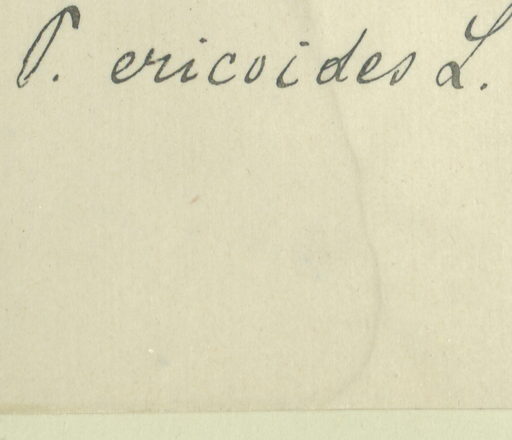 P. ericoides L.